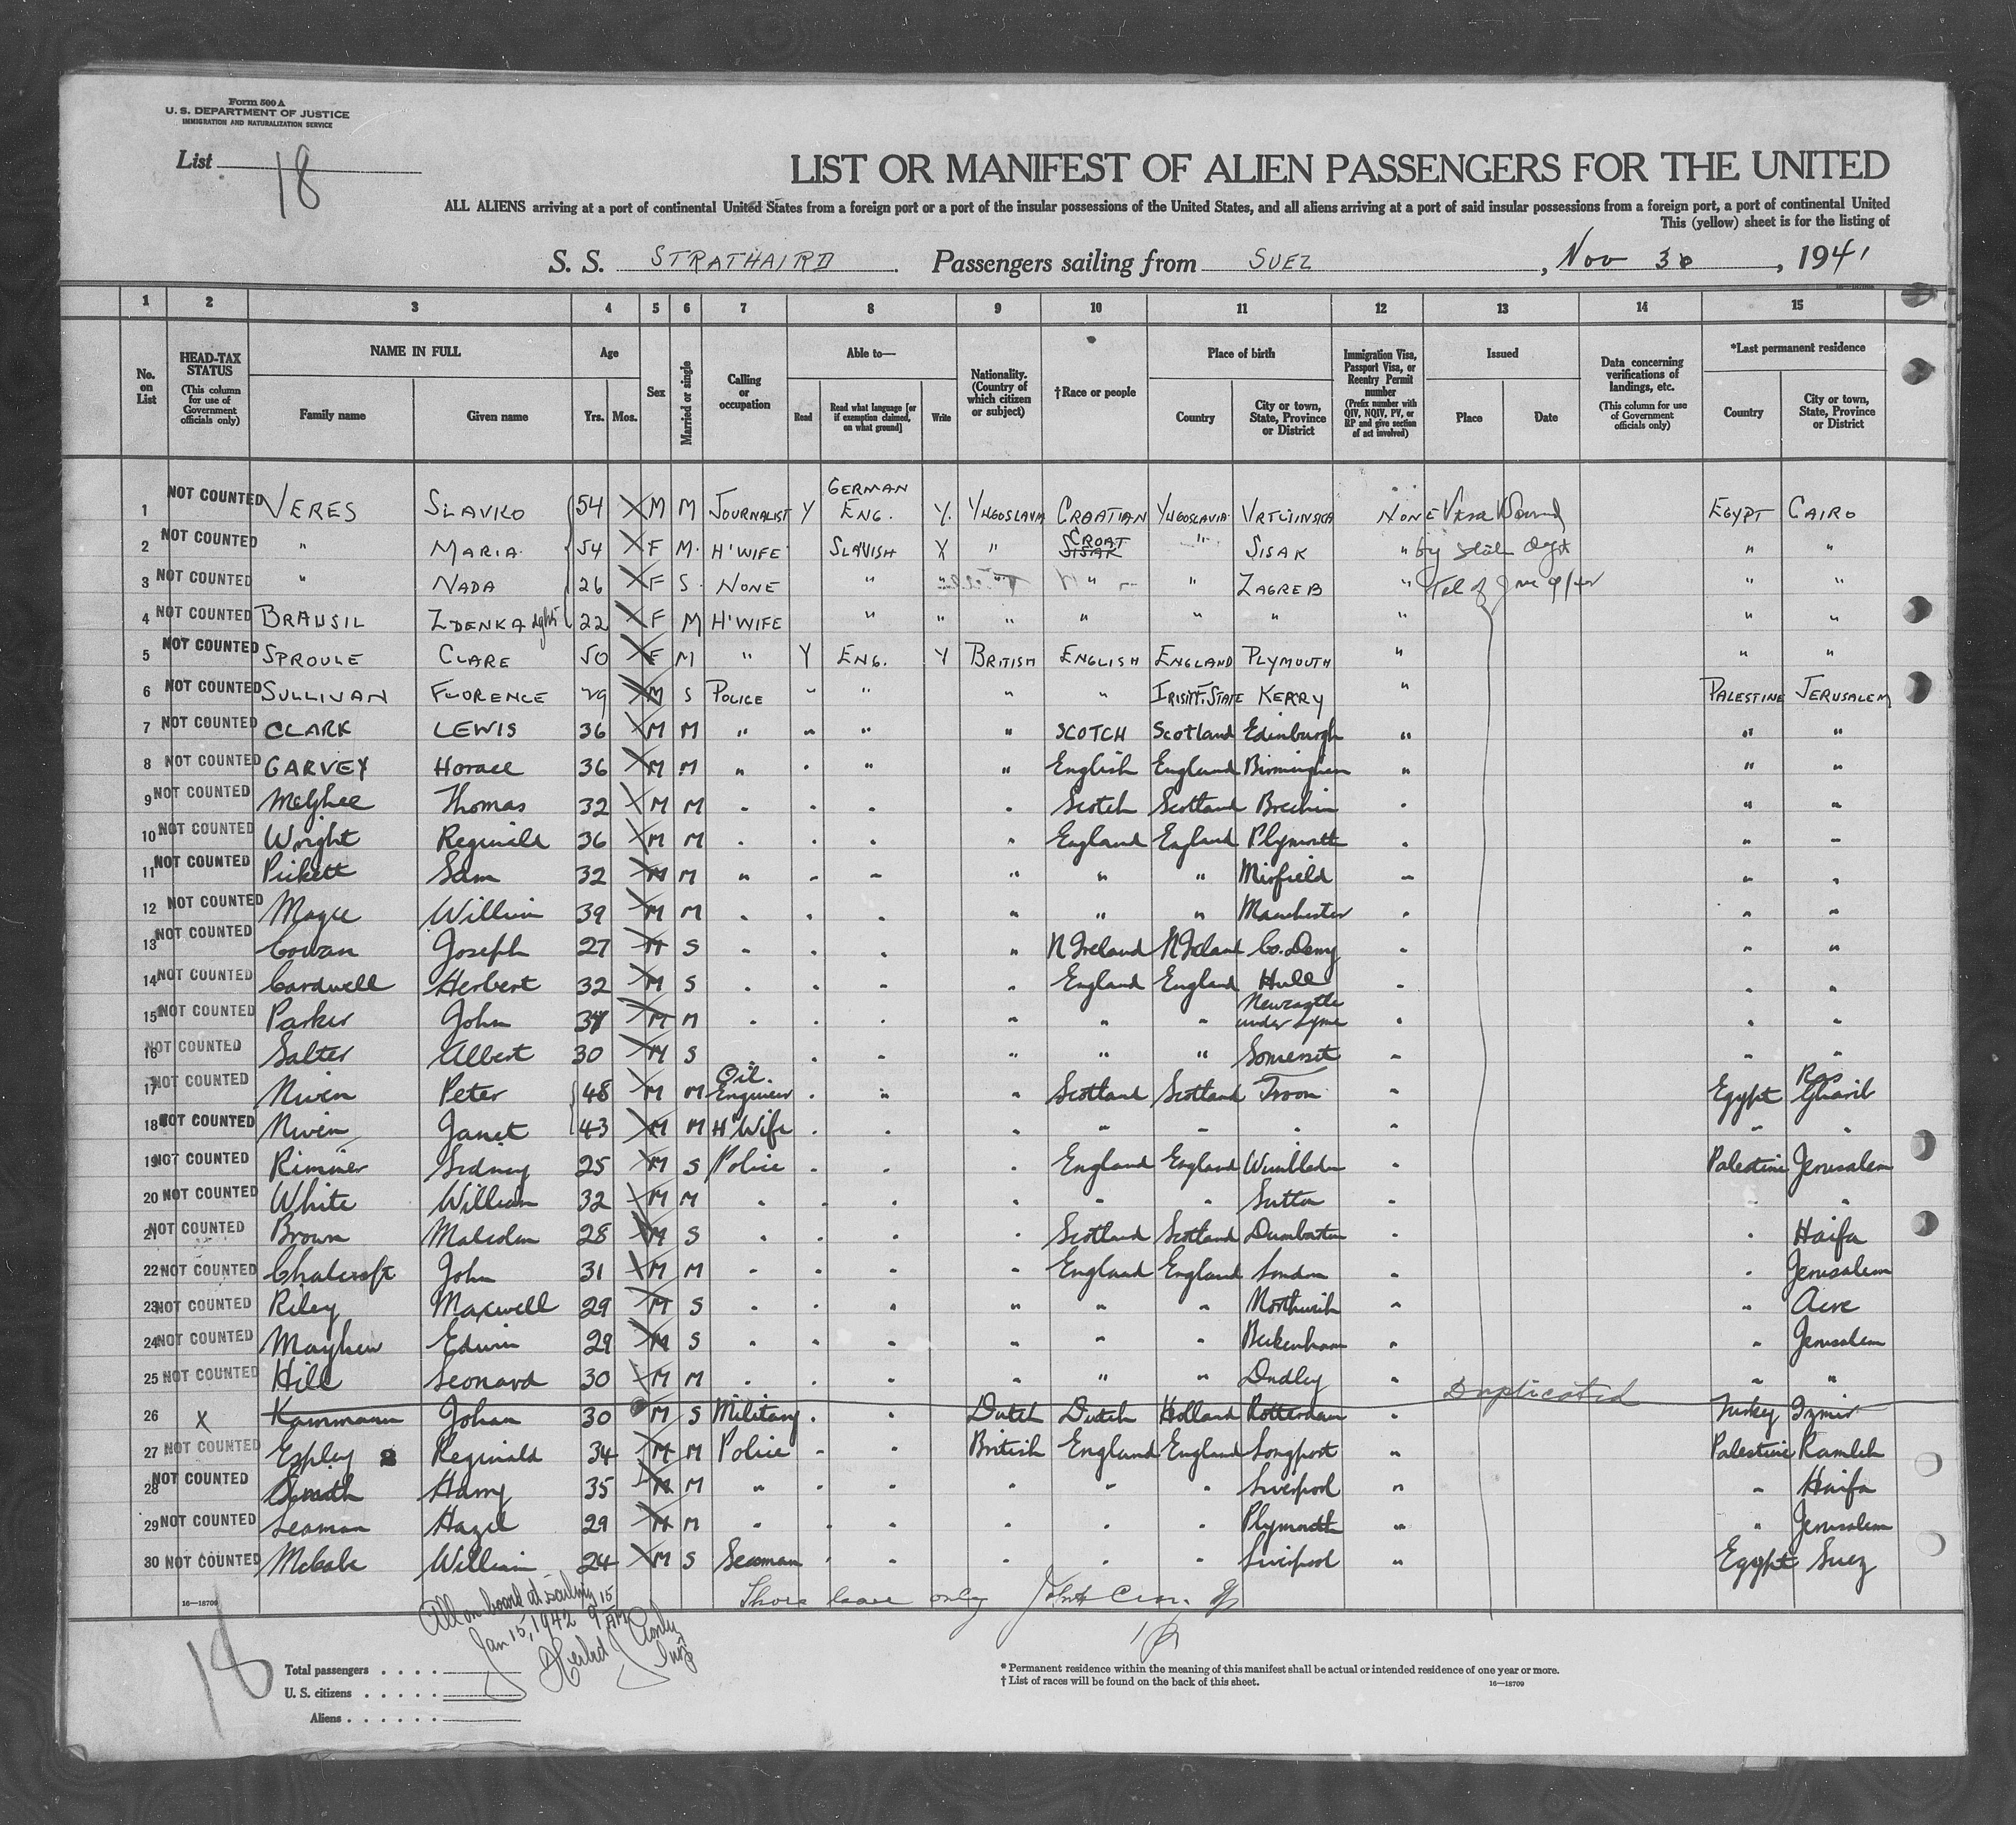 Form 500 A
U. S. DEPARTMENT OF JUSTICE
IMMIGRATION AND NATURALIZATION SERVICE
List 18
LIST OR MANIFEST OF ALIEN PASSENGERS FOR THE UNITED
ALL ALIENS arriving at a port of continental United States from a foreign port or a port of the insular possessions of the United States, and all aliens arriving at a port of said insular possessions from a foreign port, a port of continental United
This (yellow) sheet is for the listing of
S. S. STRATHAIRD Passengers sailing from SUEZ, Nov 30, 1941
1 2 3 4 5 6 7 8 9 10 11 12 13 14 15
No. on List
HEAD-TAX STATUS (This column for use of Government officials only)
NAME IN FULL Family name Given name
Age Yrs. Mos.
Sex
Married or single
Calling or occupation
Able to— Read Read what language [or if exemption claimed, on what ground] Write
Nationality. (Country of which citizen or subject)
†Race or people
Place of birth Country City or town, State, Province or District
Immigration Visa, Passport Visa, or Reentry Permit number (Prefix number with QIV, NQIV, PV, or RP and give section of act involved)
Issued Place Date
Data concerning verifications of landings, etc. (This column for use of Government officials only)
*Last permanent residence Country City or town, State, Province or District
1 NOT COUNTED VERES SLAVKO 54 M M JOURNALIST Y GERMAN ENG. Y. YUGOSLAVIA CROATIAN YUGOSLAVIA NONE Visa EGYPT CAIRO
2 NOT COUNTED " MARIA 54 F M. H'WIFE SLAVISH Y " CROAT SISAK " SISAK " by State Dept " "
3 NOT COUNTED " NADA 26 F S. NONE " " " " " ZAGREB " Tel of " "
4 NOT COUNTED BRAUSIL ZDENKA 22 F M H'WIFE " " " " " " " " "
5 NOT COUNTED SPROULE CLARE 50 F M " Y ENG. Y BRITISH ENGLISH ENGLAND PLYMOUTH " " "
6 NOT COUNTED SULLIVAN FLORENCE 29 M S POLICE " " " " IRISH F. STATE KERRY " PALESTINE JERUSALEM
7 NOT COUNTED CLARK LEWIS 36 M M " " " " SCOTCH Scotland Edinburgh " " "
8 NOT COUNTED GARVEY Horace 36 M M " " " " English England Birmingham " " "
9 NOT COUNTED McGhee Thomas 32 M M " " " " Scotch Scotland Brechin " " "
10 NOT COUNTED Wright Reginald 36 M M " " " " England England Plymouth " " "
11 NOT COUNTED Pickett Sam 32 M M " " " " " " Mirfield " " "
12 NOT COUNTED Magee William 39 M M " " " " " " Manchester " " "
13 NOT COUNTED Cowan Joseph 27 M S " " " " N Ireland N Ireland Co. Derry " " "
14 NOT COUNTED Cardwell Herbert 32 M S " " " " England England Hull " " "
15 NOT COUNTED Parker John M M " " " " " " Newcastle under Lyme " " "
16 NOT COUNTED Salter Albert 30 M S " " " " " Somerset " " "
17 NOT COUNTED Niven Peter 48 M M Oil. Engineer " " " Scotland Scotland Troon " Egypt Ras Gharib
18 NOT COUNTED Niven Janet 43 M M H'Wife " " " " " " " " "
19 NOT COUNTED Rimmer Sidney 25 M S Police " " " England England Wimbledon " Palestine Jerusalem
20 NOT COUNTED White William 32 M M " " " " " " Sutton " " "
21 NOT COUNTED Brown Malcolm 28 M S " " " " Scotland Scotland Dumbarton " " Haifa
22 NOT COUNTED Chalcroft John 31 M M " " " " England England London " " Jerusalem
23 NOT COUNTED Riley Maxwell 29 M S " " " " " " Northwich " " Acre
24 NOT COUNTED Mayhew Edwin 29 M S " " " " " " Beckenham " " Jerusalem
25 NOT COUNTED Hill Leonard 30 M M " " " " " " Dudley " " "
26 X Kammann Johan 30 M S Military " " Dutch Dutch Holland Rotterdam " Duplicated Turkey Izmir
27 NOT COUNTED Espley Reginald 34 M M Police " " British England England Longport " Palestine Ramleh
28 NOT COUNTED Smith Harry 35 M M " " " " " " Liverpool " " Haifa
29 NOT COUNTED Seaman Hazel 29 M M " " " " " " Plymouth " " Jerusalem
30 NOT COUNTED McCabe William 24 M S Seaman " " " " " Liverpool " Egypt Suez
Shore leave only
16—18709
All on board at sailing
Jan 15, 1942 9 AM
18
Total passengers . . . .
U. S. citizens . . . . .
Aliens . . . . . .
* Permanent residence within the meaning of this manifest shall be actual or intended residence of one year or more.
† List of races will be found on the back of this sheet.
16—18709